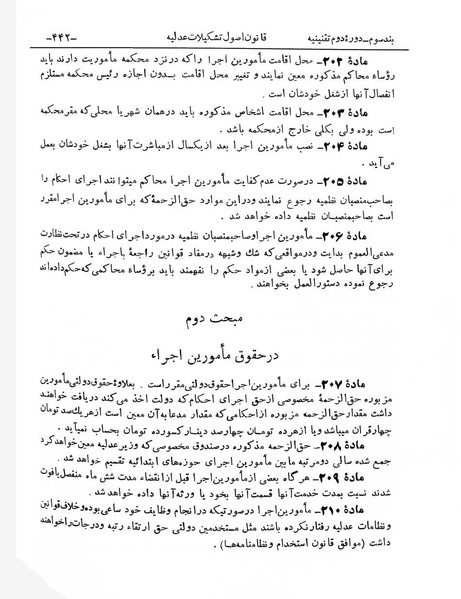 بند سوم ـ دورهٔ دوم تقنینیه قانون اصول تشکیلات عدلیه ـ۴۴۲ـ
مادهٔ ۲۰۲ـ محل اقامت مأمورین اجرا را که در نزد محکمه مأموریت دارند باید
رؤساء محاکم مذکوره معین نمایند و تغییر محل اقامت بدون اجازه رئیس محکمه مستلزم
انفصال آنها از شغل خودشان است .
مادهٔ ۲۰۳ـ محل اقامت اشخاص مذکوره باید در همان شهر یا محلی که مقر محکمه
است بوده ولی بکلی خارج از محکمه باشد .
مادهٔ ۲۰۴ـ نصب مأمورین اجرا بعد از یکسال از مباشرت آنها بشغل خودشان بعمل
می‌آید .
مادهٔ ۲۰۵ـ در صورت عدم کفایت مأمورین اجرا محاکم میتوانند اجرای احکام را
بصاحبمنصبان نظمیه رجوع نمایند و در این موارد حق الزحمهٔ که برای مأمورین اجرا مقرر
است بصاحبمنصبان نظمیه داده خواهد شد .
مادهٔ ۲۰۶ـ مأمورین اجرا و صاحبمنصبان نظمیه در مورد اجرای احکام در تحت نظارت
مدعی‌العموم بدایت و در مواقعی که شك و شبهه در مفاد قوانین راجعهٔ باجراء یا مضمون حکم
برای آنها حاصل شود یا بعضی از مواد حکم را نفهمند باید برؤساء محاکمی که حکم داده‌اند
رجوع نموده دستورالعمل بخواهند .
مبحث دوم
در حقوق مأمورین اجراء
مادهٔ ۲۰۷ـ برای مأمورین اجرا حقوق دولتی مقرر است . بعلاوهٔ حقوق دولتی مأمورین
مزبوره حق الزحمهٔ مخصوصی از حق اجرای احکام که دولت اخذ می‌کند دریافت خواهند
داشت مقدار حق الزحمه مزبوره از احکامی که مقدار مدعا به آن معین است از هر یکصد تومان
چهار قران میباشد و با از هرده تومان چهارصد دینار کسورده تومان بحساب نمیآید .
مادهٔ ۲۰۸ـ حق الزحمه مذکوره در صندوق مخصوصی که وزیر عدلیه معین خواهد کرد
جمع شده سالی دو مرتبه ما بین مأمورین اجرای حوزه‌های ابتدائیه تقسیم خواهد شد .
مادهٔ ۲۰۹ـ هر گاه بعضی از مأمورین اجرا قبل از انقضاء مدت شش ماه منفصل یا فوت
شدند نسبت بمدت خدمت آنها قسمت آنها بخود یا ورثه آنها داده خواهد شد .
مادهٔ ۲۱۰ـ مأمورین اجرا در صورتیکه در انجام وظایف خود ساعی بوده و خلاف قوانین
و نظامات عدلیه رفتار نکرده باشند مثل مستخدمین دولتی حق ارتقاء رتبه و درجات را خواهند
داشت (موافق قانون استخدام و نظامنامه‌ها) .